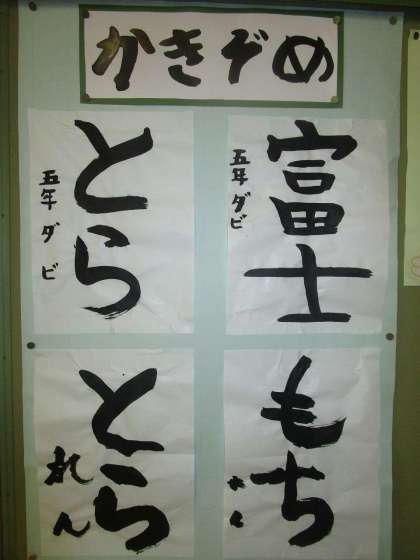 かきぞめ
富士
五年 ダビ
とら
五年 ダビ
もち
とら
れん